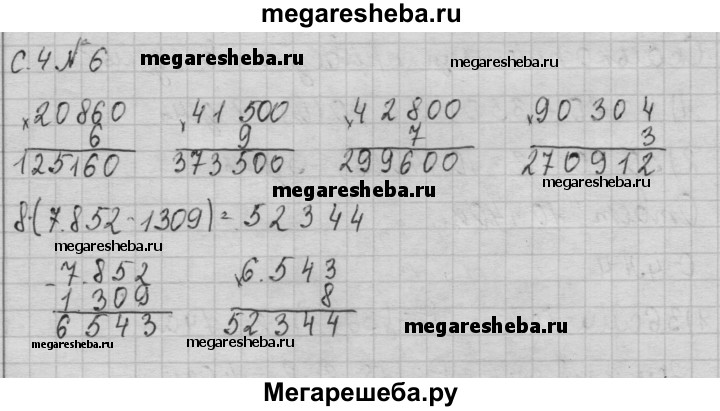 megaresheba.ru
с. 4 № 6
megaresheba.ru megaresheba.ru
×20860 ×41500 ×42800 ×90304
6 9 7 3
125160 373500 299600 270912
megaresheba.ru megaresheba.ru
8·(7.852-1309)=52344
megaresheba.ru
-7.852 ×6.543
1309 8
6543 52344
megaresheba.ru megaresheba.ru megaresheba.ru
Мегарешеба.ру